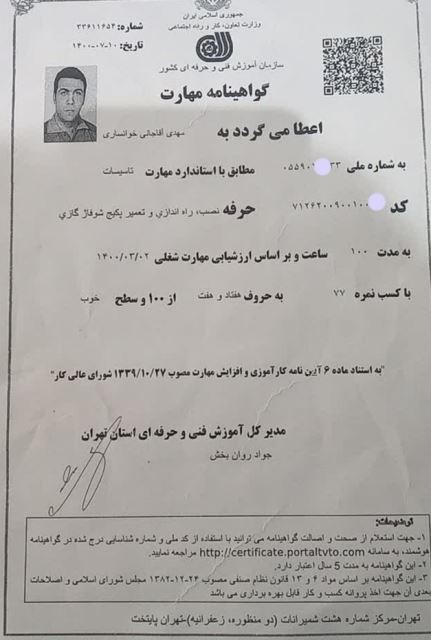 جمهوری اسلامی ایران
وزارت تعاون، کار و رفاه اجتماعی
شماره: ۳۳۶۱۱۶۵۴
تاریخ: ۱۴۰۰-۰۷-۱۰
سازمان آموزش فنی و حرفه ای کشور
گواهینامه مهارت
اعطا می گردد به مهدی آقاجانی خوانساری
به شماره ملی ۰۵۵۹۰ ۳۳ مطابق با استاندارد مهارت تاسیسات
کد ۷۱۲۶۲۰۰۹۰۰۱۰۰ حرفه نصب، راه اندازي و تعمیر پکیج شوفاژ گازي
به مدت ۱۰۰ ساعت و بر اساس ارزشیابی مهارت شغلی ۱۴۰۰/۰۳/۰۲
با کسب نمره ۷۷ به حروف هفتاد و هفت از ۱۰۰ و سطح خوب
"به استناد ماده ۶ آیین نامه کارآموزی و افزایش مهارت مصوب ۱۳۳۹/۱۰/۲۷ شورای عالی کار"
مدیر کل آموزش فنی و حرفه ای استان تهران
جواد روان بخش
توضیحات:
۱- جهت استعلام از صحت و اصالت گواهینامه می توانید با استفاده از کد ملی و شماره شناسایی درج شده در گواهینامه
هوشمند، به سامانه http://certificate.portaltvto.com مراجعه نمایید.
۲- این گواهینامه به مدت 5 سال اعتبار دارد.
۳- این گواهینامه بر اساس مواد ۴ و ۱۳ قانون نظام صنفی مصوب ۲۴-۱۲-۱۳۸۲ مجلس شورای اسلامی و اصلاحات
بعدی آن جهت اخذ پروانه کسب و کار قابل بهره برداری می باشد
تهران-مرکز شماره هشت شمیرانات (دو منظوره، زعفرانیه)-تهران-پایتخت